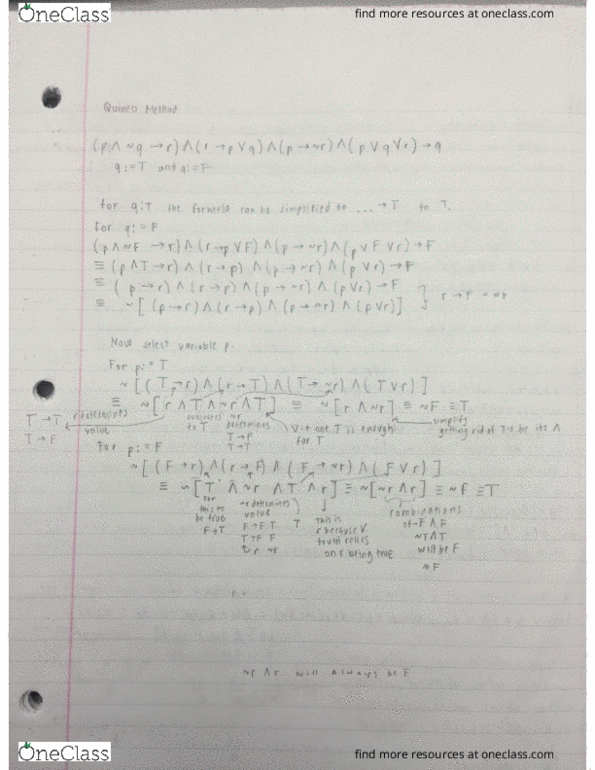 OneClass find more resources at oneclass.com
Quine's Method
(p ∧ ~q → r) ∧ (r → p ∨ q) ∧ (p → ~r) ∧ (p ∨ q ∨ r) → q
q := T and q := F
for q:T the formula can be simplified to ... → T to T.
For q: = F
(p ∧ ~F → r) ∧ (r → p ∨ F) ∧ (p → ~r) ∧ (p ∨ F ∨ r) → F
≡ (p ∧ T → r) ∧ (r → p) ∧ (p → ~r) ∧ (p ∨ r) → F
≡ (p → r) ∧ (r → p) ∧ (p → ~r) ∧ (p ∨ r) → F
≡ ~[(p → r) ∧ (r → p) ∧ (p → ~r) ∧ (p ∨ r)]
Now select variable p:
For p: = T
~[(T → r) ∧ (r → T) ∧ (T → ~r) ∧ (T ∨ r)]
≡ ~[r ∧ T ∧ ~r ∧ T] ≡ ~[r ∧ ~r] ≡ ~F ≡ T
T → T r determines value
T → F
to T
~r determines
T → F
T → T
∨ : one T is enough for T
simplify
getting rid of T's bc its ∧
For p: = F
~[(F → r) ∧ (r → F) ∧ (F → ~r) ∧ (F ∨ r)]
≡ ~[T ∧ ~r ∧ T ∧ r] ≡ ~[~r ∧ r] ≡ ~F ≡ T
For this to be true
F → T
~r determines value
F → F T
T → F F
r ~r
T
This is r because ∨ truth relies on r being true
combinations
of ~F ∧ F
~T ∧ T
will be F
~F
~r ∧ r will always be F
OneClass find more resources at oneclass.com